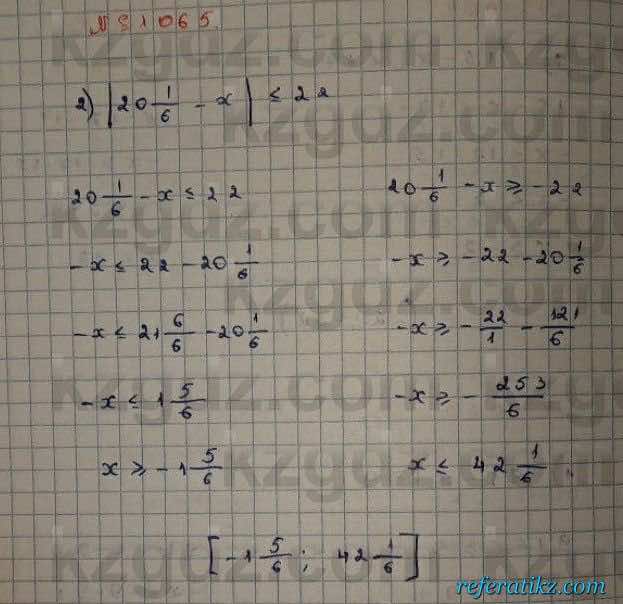 №1065.
2) |20 1/6 - x| ≤ 22
20 1/6 - x ≤ 22
-x ≤ 22 - 20 1/6
-x ≤ 21 6/6 - 20 1/6
-x ≤ 1 5/6
x ≥ -1 5/6
20 1/6 - x ≥ -22
-x ≥ -22 - 20 1/6
-x ≥ - 22/1 - 121/6
-x ≥ - 253/6
x ≤ 42 1/6
[-1 5/6 ; 42 1/6]
kzgdz.com
referatikz.com